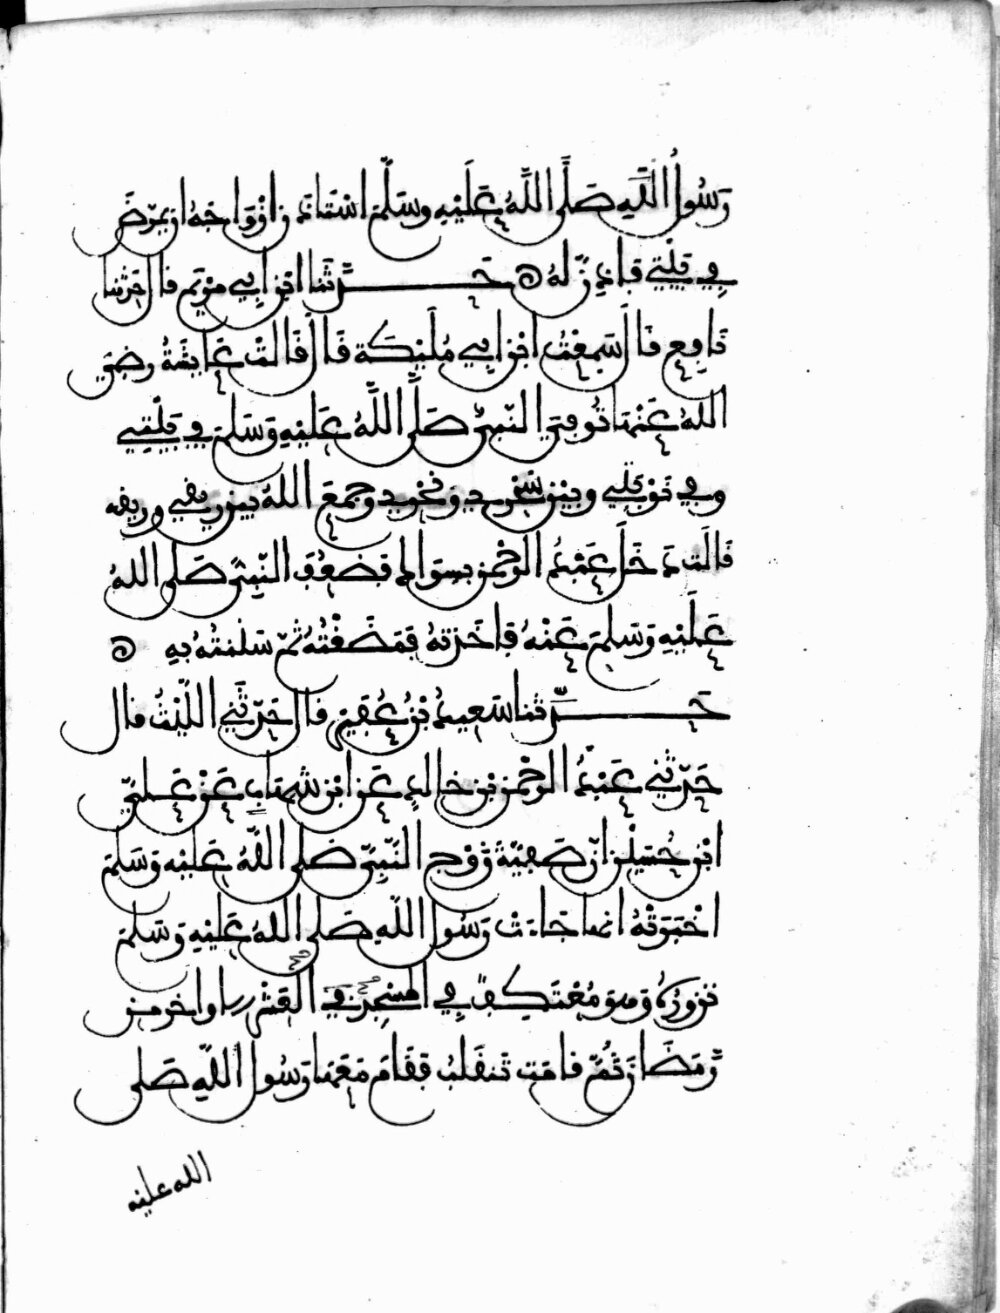 رَسُولُ اللَّهِ صَلَّى اللَّهُ عَلَيْهِ وسَلَّمَ اسْتَاذَن أزْوَاجَهُ ان يمَرَّضَ
فِي بَيْتِي فَأذِنَّ لَهُ حَدَّثَنَا ابْن أبِي مَرْيَم قال حَدَّثَنَا
نَافِع قَال سَمِعْتُ ابْن أبِي مُلَيْكَة قَال قَالَتْ عَايشَةُ رضي
اللهُ عَنْهَا تُوفِّيَ النَّبِيُّ صَلَّى اللَّهُ عَلَيْهِ وَسَلم في بَيْتِي
وفي نَوْبَتي وبَيْن سَحْرِي ونَحْرِي وجَمَعَ اللهُ بين ريقي وريقه
قَالَت دَخَلَ عَبْدُ الرَّحْمن بسِوَاك فضَعُفَ النَّبِيُّ صَلى اللهُ
عَلَيْهِ وَسَلم عَنْهُ فَأخَذتهُ فمَضَغْتُهُ ثمّ سَنَنتُهُ بِهِ
حَدَّثنا سَعِيدُ بْنُ عُفَيْر قال حَدّثَنِي اللَّيْثُ قال
حَدّثَنِي عَبْدُ الرَّحْمن بن خالِدٍ عَن ابْن شِهَابٍ عَنْ عَليّ
ابْن حُسَيْن انّ صَفِيّةَ زَوْج النَّبِيّ صَلى اللّهُ عَليْه وَسَلم
اخْبَرَتْهُ انها جَاءَتْ رَسُول اللّهِ صَلى اللهُ عَلَيْهِ وَسَلم
تَزورُهُ وَهوَ مُعْتَكِفٌ فِي المسْجِد في العَشْر الاواخر من
رَمَضَان ثُمَّ قامَت تَنقَلبُ فقَامَ مَعَهَا رَسُول اللّهِ صَلى
الله عليه